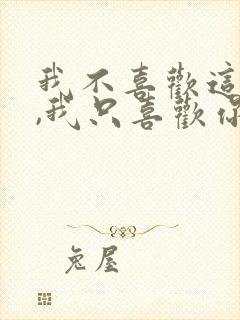 我不喜歡這
,我只喜歡你
兔屋